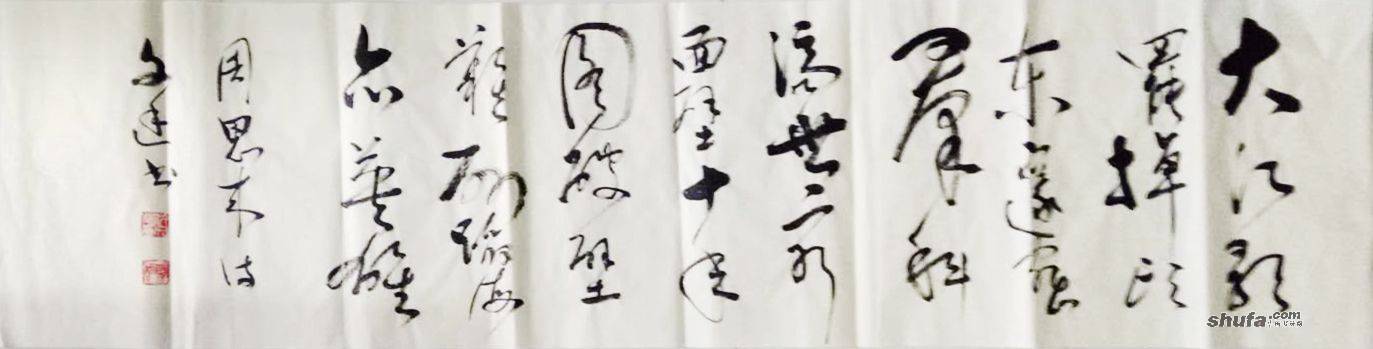 大江歌
羅掉头
东邃密
羣科
济世穷
面壁十年
图破壁
難酬蹈海
亦英雄
周恩来诗
文 书
shufa.com